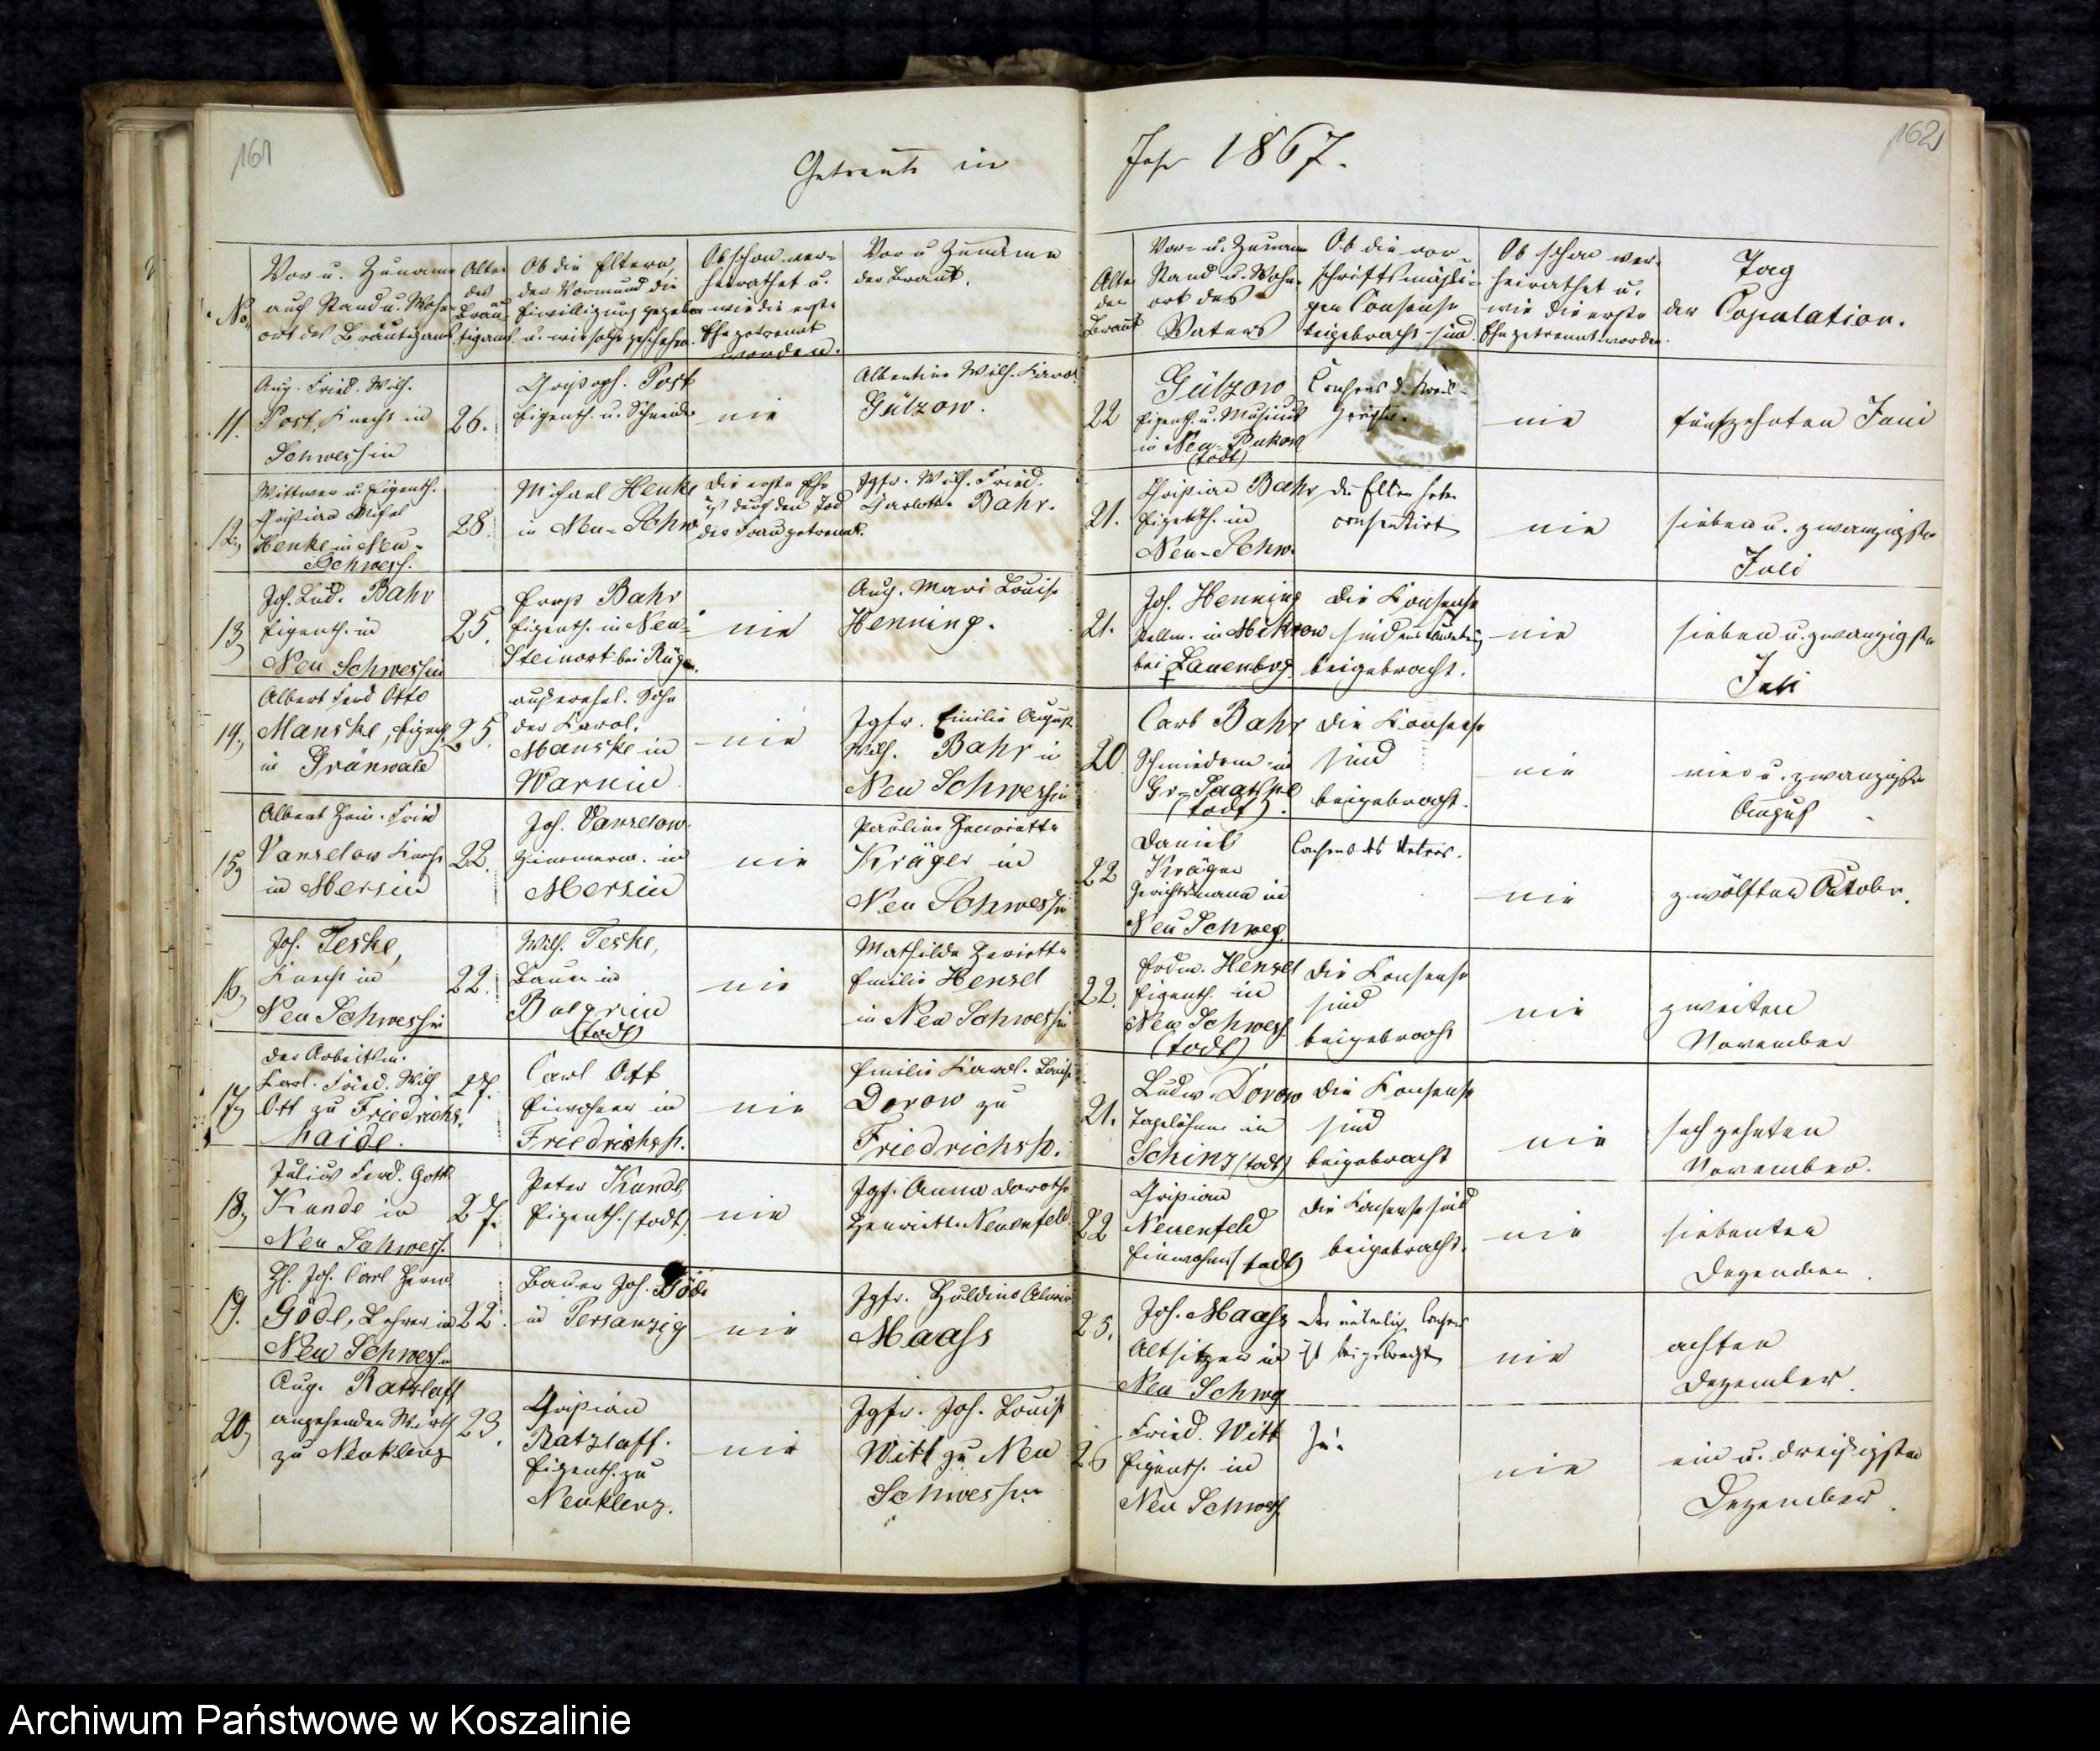 161
162
Getraute im
Jahr 1867.
No.
Vor u. Zuname
auch Stand u. Wohn-
ort des Bräutigams.
Alter
des
Bräu-
tigams.
Ob die Eltern,
der Vormund die
Einwilligung gegeben
u. wie solche geschehen.
Ob schon ver-
heirathet u.
wie die erste
Ehe getrennt
worden.
Vor u Zuname
der Braut.
Alter
der
Braut
Vor- u. Zuname
Stand u. Wohn-
ort des
Vaters
Ob die vor-
schriftsmäßi-
gen Consense
beigebracht sind.
Ob schon ver-
heirathet u.
wie die erste
Ehe getrennt worden.
Tag
der Copulation.
11.
Aug. Fried. Wilh.
Post, Knecht in
Schwessin
26.
Christoph. Post
Eigenth. u. Schneider
nie
Albertine Wilh. Karol.
Gützow.
22
Gützow
Eigenth. u. Musicus
in Neu-Bukow
(todt)
Consens d. Kreis-
gerichts.
nie
fünfzehnten Juni
12.
Wittwer u. Eigenth.
Christian Michael
Henke in Neu-
Schwess.
28.
Michael Henke
in Neu-Schw.
Die erste Ehe
ist durch den Tod
der Frau getrennt.
Jgfr. Wilh. Fried.
Charlotte Bahr.
21.
Christian Bahr
Eigenth. in
Neu-Schw.
die Eltern haben
consentirt
nie
sieben u. zwanzigste
Juli
13.
Joh. Lud. Bahr
Eigenth. in
Neu Schwessin
25.
Bahr
Eigenth. in Neu-
Steinort bei Rügen.
nie
Aug. Marie Louise
Henning.
21.
Joh. Henning
in
bei Lauenbrg.
Die Konsense
sind
beigebracht.
nie
sieben u. zwanzigste
Juli
14.
Albert Ferd Otto
Manske, Eigenth.
in Grünwald
25.
außerehel. Sohn
der Karol.
Manske in
Warnin
nie
Jgfr. Emilie August
Wilh. Bahr in
Neu Schwessin
20
Carl Bahr
Schmiedem. in
(todt).
Die Konsense
sind
beigebracht.
nie
vier u. zwanzigste
August
15.
Albert Hein. Fried
Vanselow Knecht
in Mersin
22.
Joh. Vanselow
Zimmerm. in
Mersin
nie
Pauline Henriette
Krüger in
Neu Schwessin
22
Daniel
Krüger
Gerichtsmann in
Neu Schweß.
Consens des Vaters.
nie
zwölften Octobr.
16.
Joh. Teske,
Knecht in
Neu Schwessin
22.
Wilh. Teske,
Bauer in
Bulgrin
(todt)
nie
Mathilde Henriette
Emilie Hensel
in Neu Schwessin
22.
Hensel
Eigenth. in
Neu Schwess
(todt)
Die Konsense
sind
beigebracht
nie
zweiten
November
17.
Der Arbeitsm.
Karl. Fried. Wilh
Ott zu Friedrichs-
haide.
27.
Carl Ott
Einwohner in
Friedrichsh.
nie
Emilie Karol. Louise
Dorow zu
Friedrichsh.
21.
Ludw. Dorow
Tagelöhner in
Schinz (todt)
Die Konsense
sind
beigebracht
nie
sechzehnten
November.
18.
Julius Ferd. Gottl.
Kunde in
Neu Schwess.
27.
Peter Kunde
Eigenth. (todt)
nie
Jgf. Anna Dorothe
Henriette Neuenfeld
22
Christian
Neuenfeld
Einwohner (todt)
Die Konsense sind
beigebracht.
nie
siebenten
Dezember.
19.
Joh. Carl Herm.
Göde, Lehrer in
Neu Schwessin
22.
Bauer Joh. Göde
in Persanzig
nie
Jgfr. Huldine Alwine
Maass
25.
Joh. Maass
Altsitzer in
Neu Schwß
Der väterlich Consens
ist beigebracht
nie
achten
Dezember.
20.
Aug. Ratzlaff
angehender Wirth
zu Neuklenz
23.
Christian
Ratzlaff.
Eigenth. zu
Neuklenz.
nie
Jgfr. Joh. Louise
Witt zu Neu
Schwessin
26
Fried. Witt
Eigenth. in
Neu Schwess.
Ja.
nie
ein u. dreißigsten
Dezember.
Archiwum Państwowe w Koszalinie